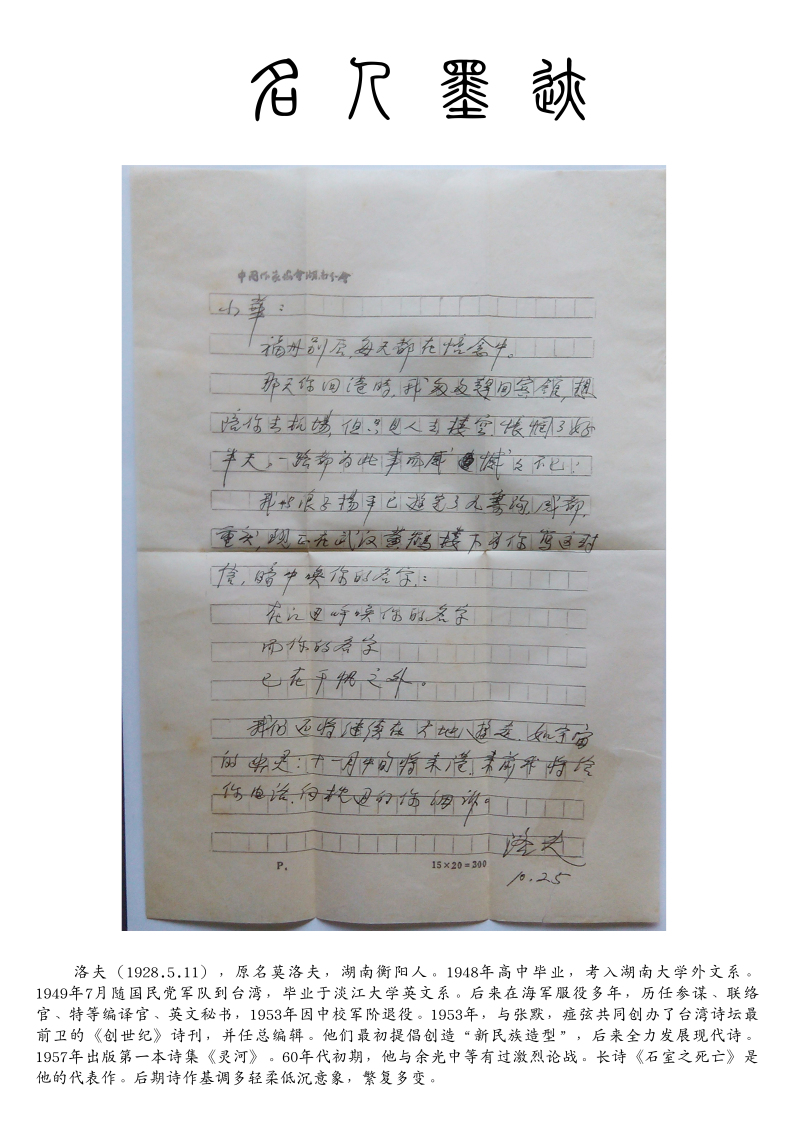 名人墨迹
中国作家协会湖南分会
小華：
福州别后，每天都在惦念中。
那天你回港时，我匆匆赶回宾馆，想
陪你去机場，但只见人去楼空，怅惘了好
半天，一路都为此事而感憾之不已！
我与浪子揚平已遊完了九寨沟，成都，
重庆，现正在武汉黄鹤楼下为你写这封
信，暗中唤你的名字：
在江边呼唤你的名字
而你的名字
已在千帆之外。
我们还将继续在大地遊走，如宇宙
的幽灵：十一月中旬将来港，来前我将给
你电话，向枕边的你细诉。
洛夫
10.25
P.
15×20=300
洛夫（1928.5.11），原名莫洛夫，湖南衡阳人。1948年高中毕业，考入湖南大学外文系。
1949年7月随国民党军队到台湾，毕业于淡江大学英文系。后来在海军服役多年，历任参谋、联络
官、特等编译官、英文秘书，1953年因中校军阶退役。1953年，与张默，痖弦共同创办了台湾诗坛最
前卫的《创世纪》诗刊，并任总编辑。他们最初提倡创造“新民族造型”，后来全力发展现代诗。
1957年出版第一本诗集《灵河》。60年代初期，他与余光中等有过激烈论战。长诗《石室之死亡》是
他的代表作。后期诗作基调多轻柔低沉意象，繁复多变。